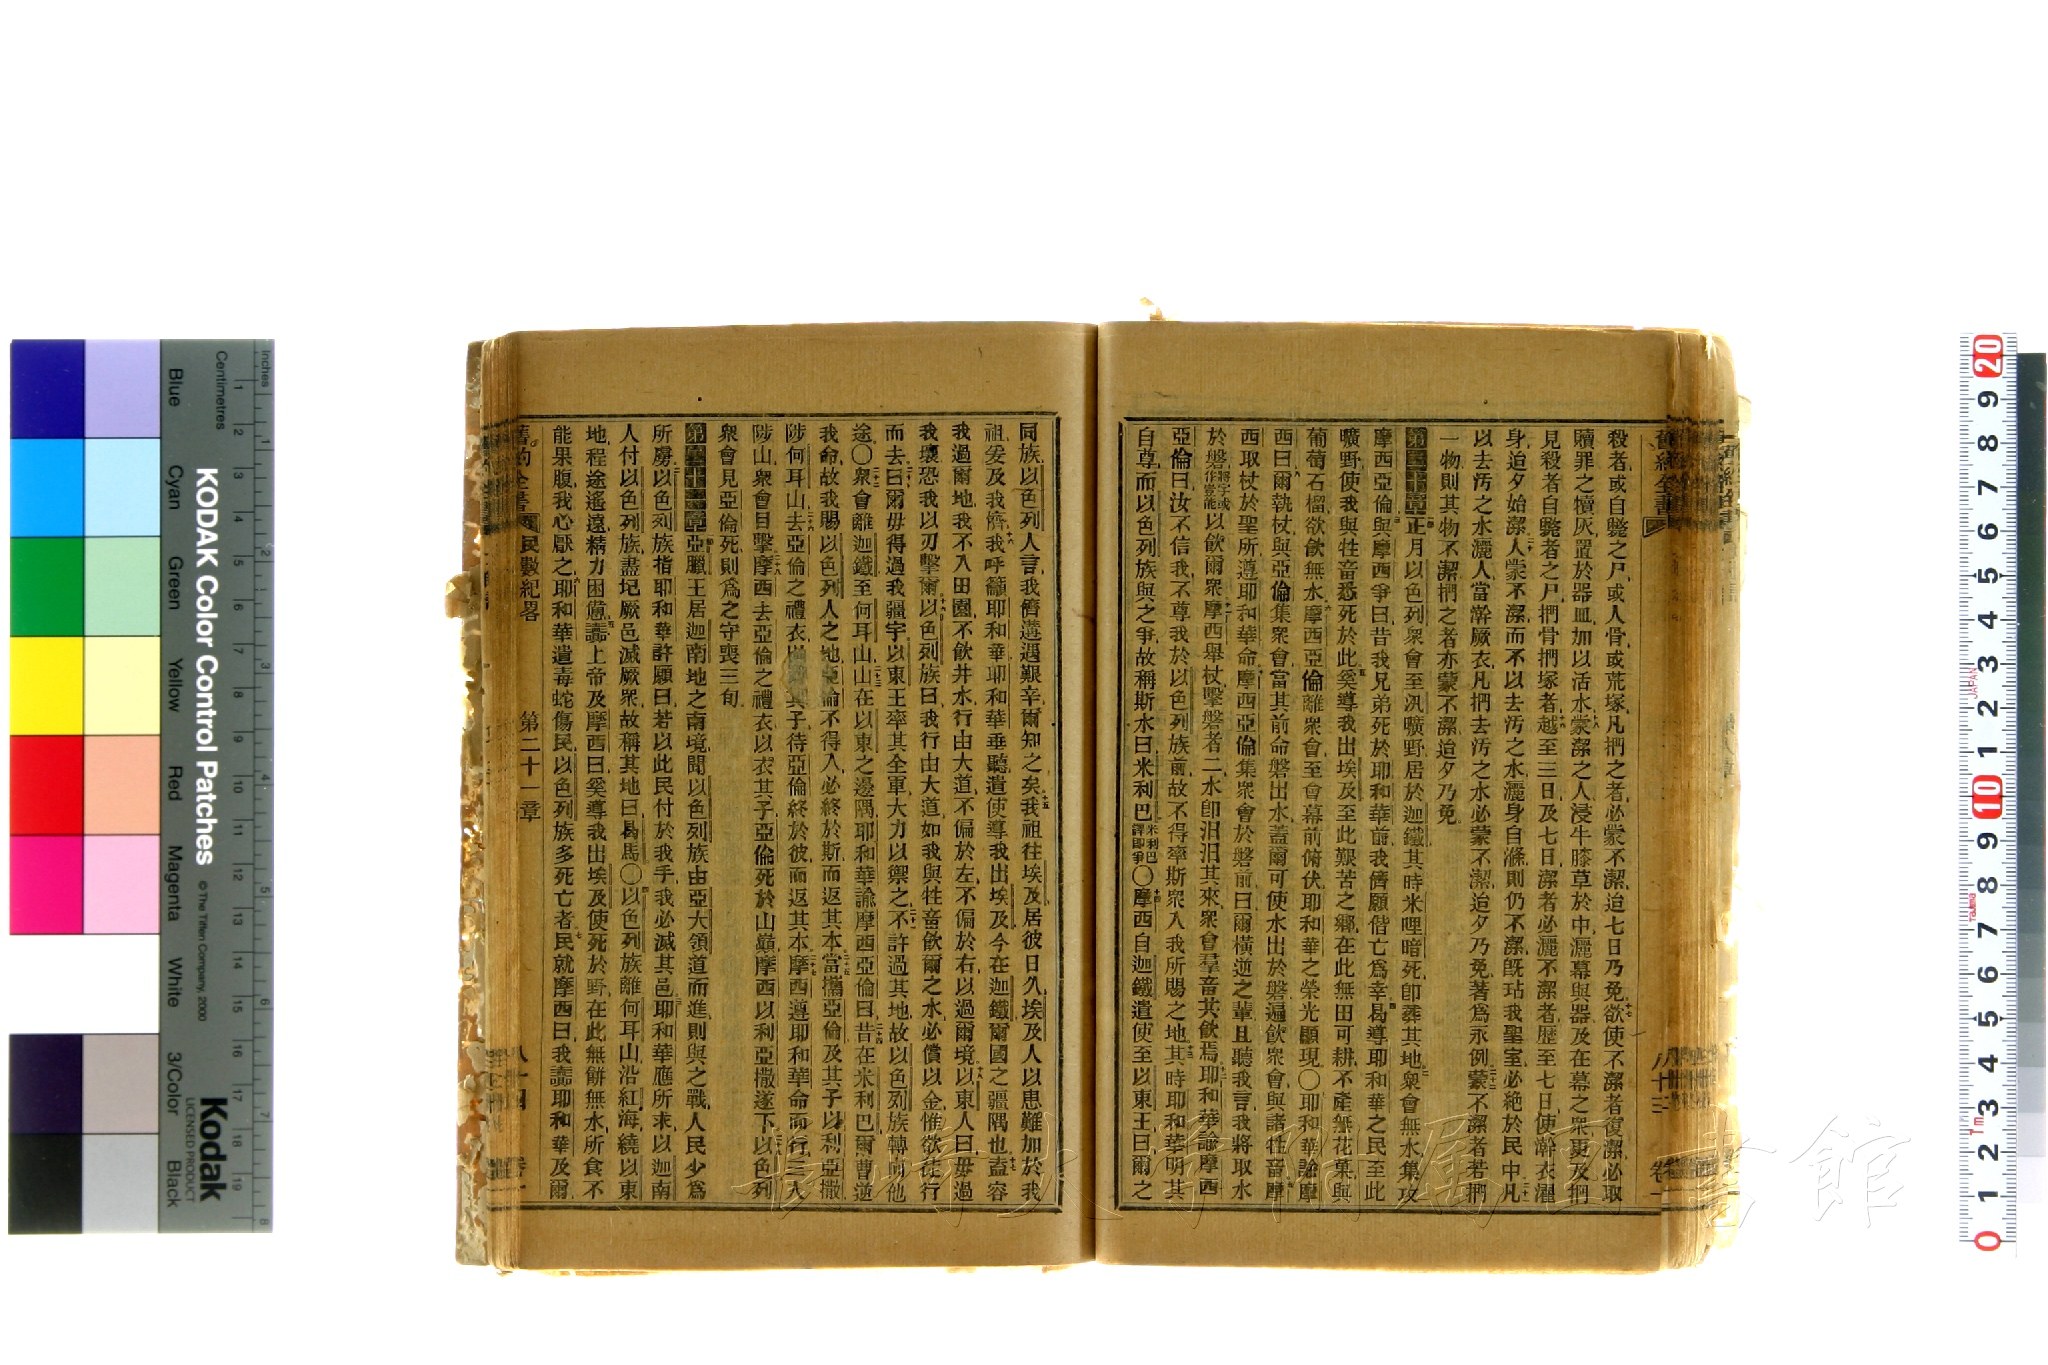 殺者或自斃之尸或人骨或荒塚凡捫之者必蒙不潔迨七日乃免欲使不潔者復潔必取
贖罪之犢灰置於器皿加以活水蒙潔之人浸牛膝草於中灑幕與器及在幕之衆更及捫
見殺者自斃者之尸捫骨捫塚者越至三日及七日潔者必灑不潔者歷至七日使澣衣濯
身迨夕始潔人蒙不潔而不以去汚之水灑身自滌則仍不潔旣玷我聖室必絶於民中凡
以去汚之水灑人當澣厥衣凡捫去汚之水必蒙不潔迨夕乃免著爲永例蒙不潔者若捫
一物則其物不潔捫之者亦蒙不潔迨夕乃免
第二十章正月以色列衆會至汛曠野居於迦鐵其時米哩暗死卽葬其地衆會無水集攻
摩西亞倫與摩西爭曰昔我兄弟死於耶和華前我儕願偕亡爲幸曷導耶和華之民至此
曠野使我與牲畜悉死於此奚導我出埃及至此艱苦之鄕在此無田可耕不產無花菓與
葡萄石榴欲飮無水摩西亞倫離衆會至會幕前俯伏耶和華之榮光顯現〇耶和華諭摩
西曰爾執杖與亞倫集衆會當其前命磐出水蓋爾可使水出於磐遍飮衆會與諸牲畜摩
西取杖於聖所遵耶和華命摩西亞倫集衆會於磐前曰爾橫逆之輩且聽我言我將取水
於磐將字或作豈能以飮爾衆摩西舉杖擊磐者二水卽汨汨其來衆會羣畜共飮焉耶和華諭摩西
亞倫曰汝不信我不尊我於以色列族前故不得率斯衆入我所賜之地其時耶和華明其
自尊而以色列族與之爭故稱斯水曰米利巴米利巴譯卽爭〇摩西自迦鐵遣使至以東王曰爾之
八十三
卷一
同族以色列人言我儕遘遇艱辛爾知之矣我祖往埃及居彼日久埃及人以患難加於我
祖爰及我儕我呼籲耶和華耶和華垂聽遣使導我出埃及今在迦鐵爾國之疆隅也盍容
我過爾地我不入田園不飮井水行由大道不偏於左不偏於右以過爾境以東人曰毋過
我壤恐我以刃擊爾以色列族曰我行由大道如我與牲畜飮爾之水必償以金惟欲徒行
而去曰爾毋得過我疆宇以東王率其全軍大力以禦之不許過其地故以色列族轉向他
途〇衆會離迦鐵至何耳山山在以東之邊隅耶和華諭摩西亞倫曰昔在米利巴爾曹逆
我命故我賜以色列人之地亞倫不得入必終於斯而返其本當攜亞倫及其子以利亞撒
陟何耳山去亞倫之禮衣以衣其子待亞倫終於彼而返其本摩西遵耶和華命而行三人
陟山衆會目擊摩西去亞倫之禮衣以衣其子亞倫死於山巓摩西以利亞撒遂下以色列
衆會見亞倫死則爲之守喪三旬
第二十一章亞臘王居迦南地之南境聞以色列族由亞大領道而進則與之戰人民少爲
所虜以色列族指耶和華許願曰若以此民付於我手我必滅其邑耶和華應所求以迦南
人付以色列族盡圮厥邑滅厥衆故稱其地曰曷馬〇以色列族離何耳山沿紅海繞以東
地程途遙遠精力困憊讟上帝及摩西曰奚導我出埃及使死於野在此無餠無水所食不
能果腹我心厭之耶和華遣毒蛇傷民以色列族多死亡者民就摩西曰我讟耶和華及爾
舊約全書
民數紀畧
第二十一章
八十四